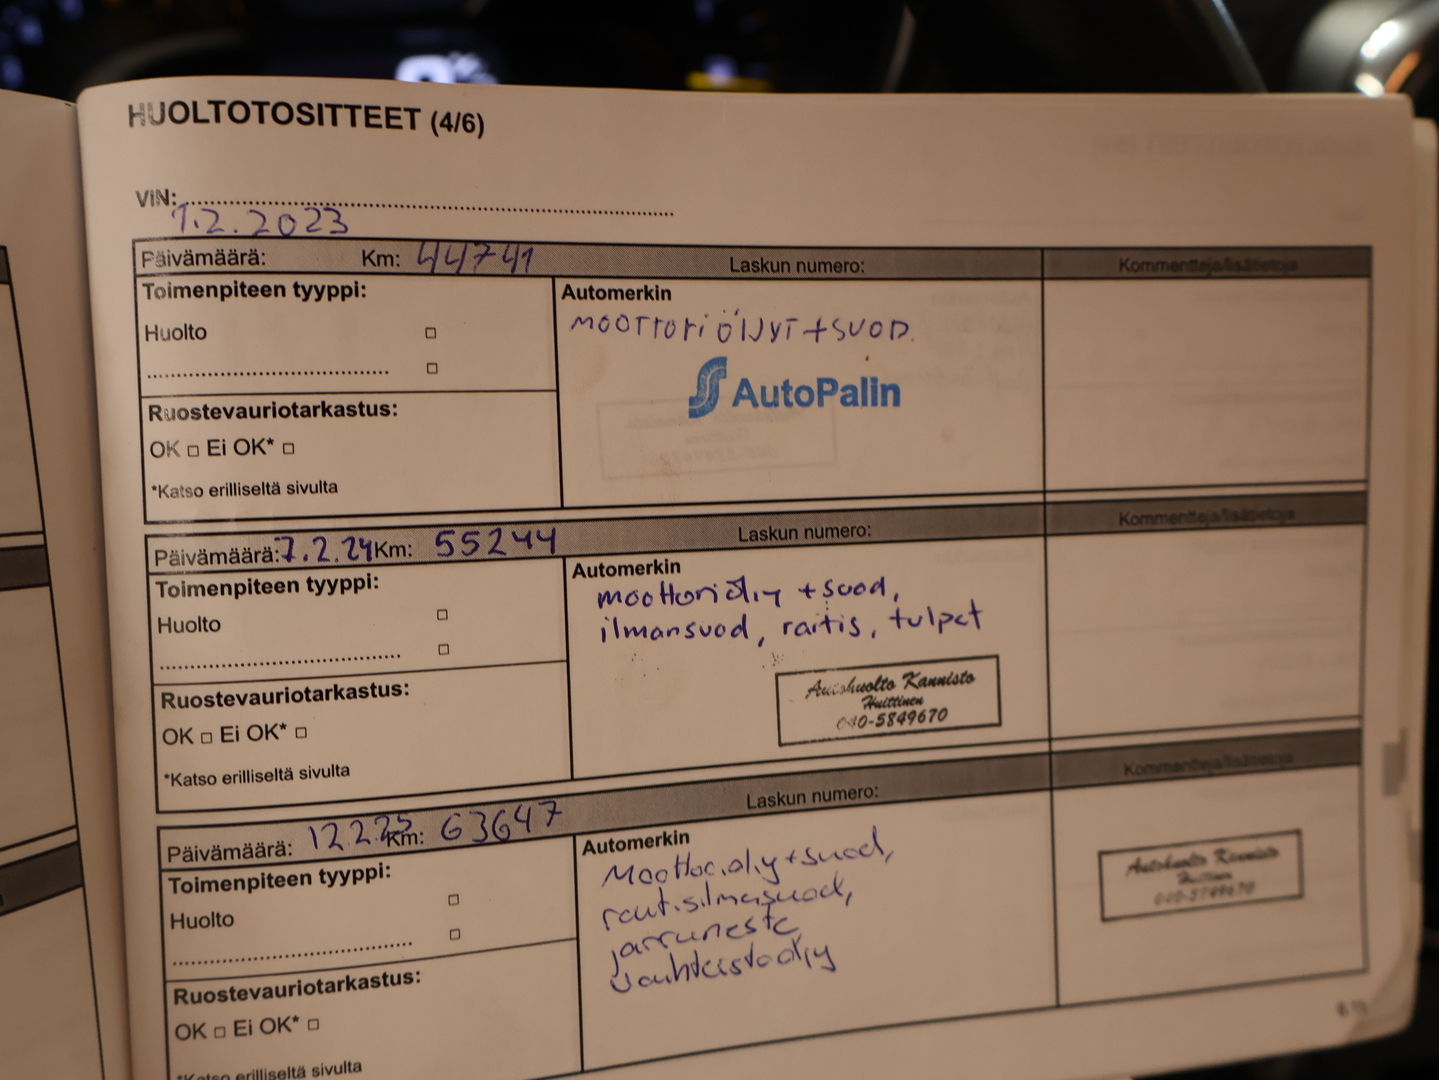 HUOLTOTOSITTEET (4/6)
VIN:
1.2.2023
Päivämäärä: Km: 44741 Laskun numero: Kommentteja/lisätietoja
Toimenpiteen tyyppi: Automerkin
Huolto MOOTTORIÖLJYT + SUOD.
AutoPalin
Ruostevauriotarkastus:
OK □ Ei OK* □
*Katso erilliseltä sivulta
Päivämäärä: 7.2.24 Km: 55244 Laskun numero: Kommentteja/lisätietoja
Toimenpiteen tyyppi: Automerkin
Huolto moottoriöljy + suod,
ilmansuod, raitis, tulpat
Ruostevauriotarkastus:
Autohuolto Kannisto
Huittinen
040-5849670
OK □ Ei OK* □
*Katso erilliseltä sivulta
Päivämäärä: 12.2.25 Km: 63647 Laskun numero: Kommentteja/lisätietoja
Toimenpiteen tyyppi: Automerkin
Huolto
Moottoriöljy + suod,
raitisilmasuod,
jarruneste
vauhteistoöljy
Autohuolto Kannisto
Huittinen
040-5849670
Ruostevauriotarkastus:
OK □ Ei OK* □
*Katso erilliseltä sivulta